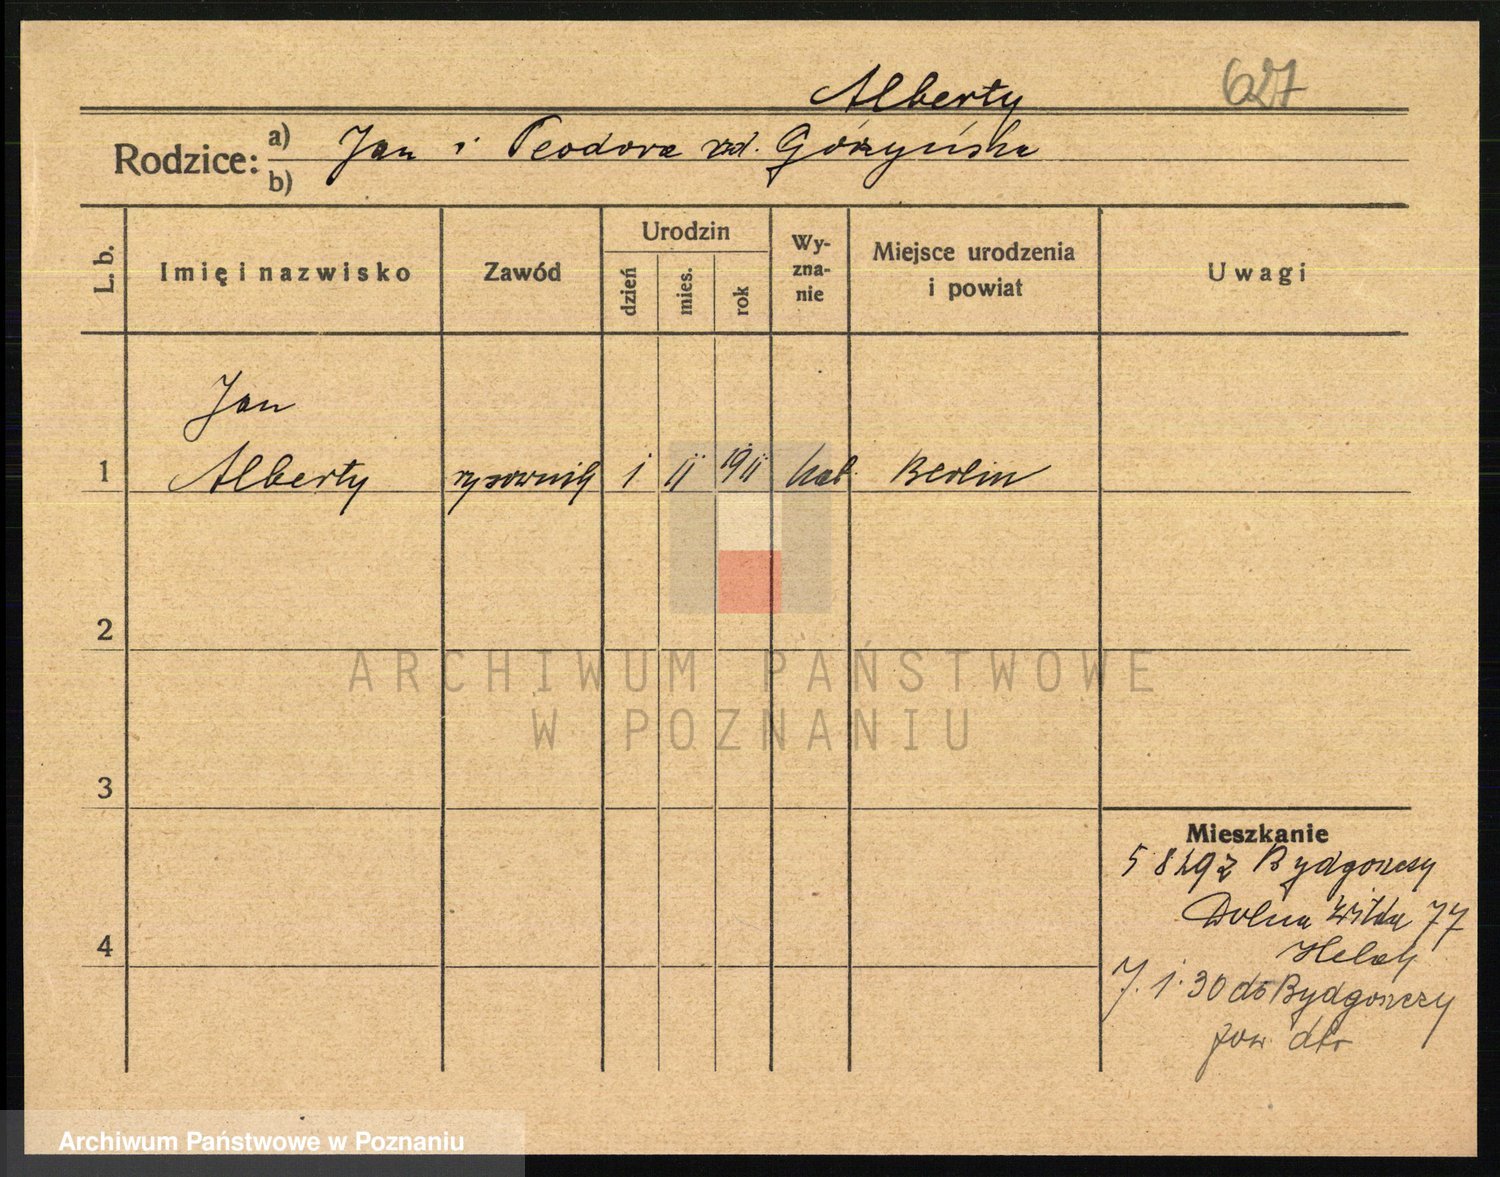 627
Alberty
Rodzice: a) Jan i Teodora zd. Górzyńska
b)
L. b. Imię i nazwisko Zawód Urodzin dzień mies. rok Wy-zna-nie Miejsce urodzenia i powiat Uwagi
Jan
1 Alberty rysownik 1 II 1911 kat. Berlin
2
ARCHIWUM PAŃSTWOWE
W POZNANIU
3
Mieszkanie
5 8 29 z Bydgoszczy
Dolna Wilda 77
4
7. 1. 30 do Bydgoszczy
Archiwum Państwowe w Poznaniu